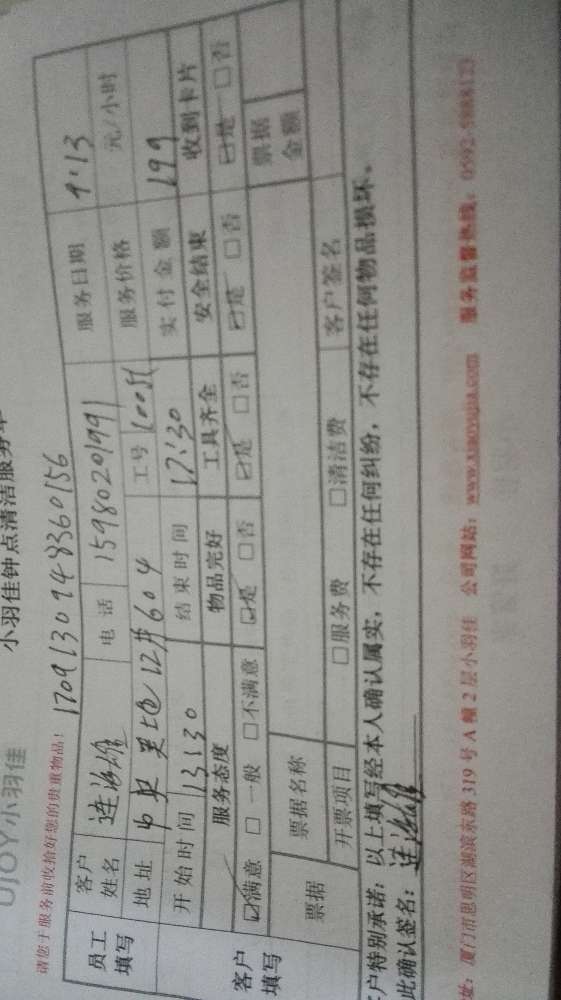 UJOY小羽佳
小羽佳钟点清洁服务单
请您于服务前收拾好您的贵重物品！
1709130948360156
员工填写 客户姓名 连 电话 15980201991 服务日期 9.13
地址 中央美地12#604 工号 服务价格 元/小时
开始时间 13:30 结束时间 17:30 实付金额 199
客户填写 服务态度 物品完好 工具齐全 安全结束 收到卡片
☑满意 □一般 □不满意 ☑是 □否 ☑是 □否 ☑是 □否 ☑是 □否
票据 票据名称 票据金额
开票项目 □服务费 □清洁费 客户签名
客户特别承诺：以上填写经本人确认属实，不存在任何纠纷，不存在任何物品损坏。
此确认签名：连
址：厦门市思明区湖滨东路319号A幢2层小羽佳 公司网站：www.xiaoyujia.com 服务监督热线：0592-5988123